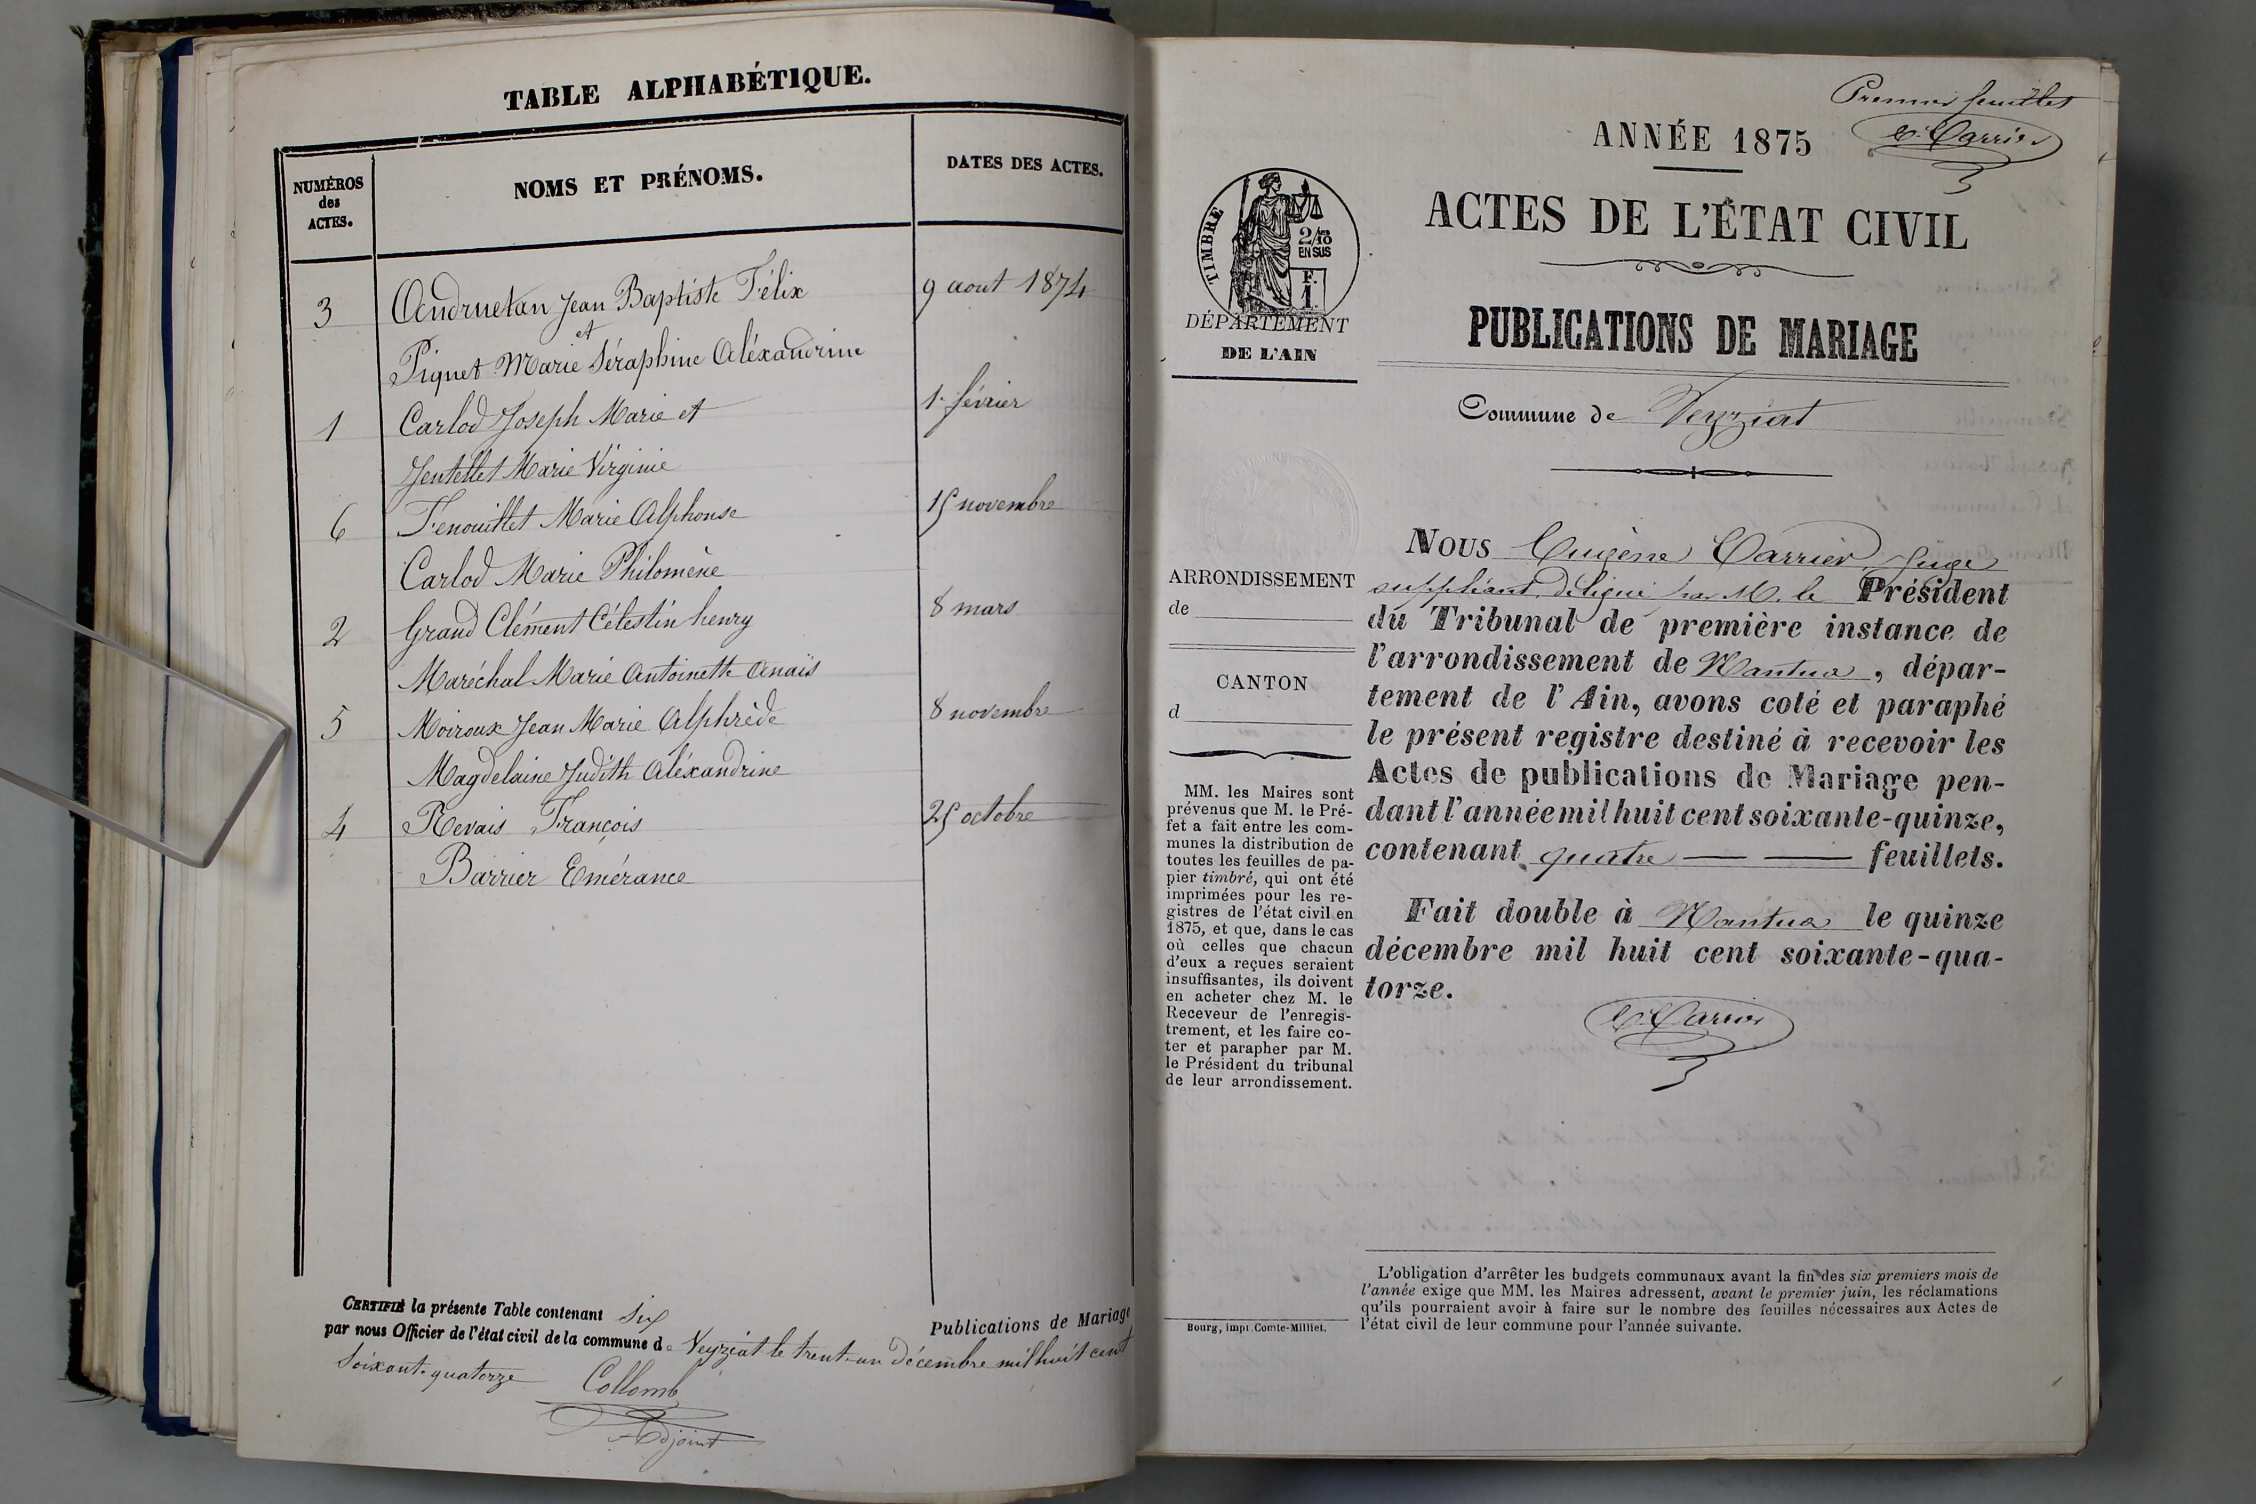 TABLE ALPHABÉTIQUE.
NUMÉROS
des
ACTES.
NOMS ET PRÉNOMS.
DATES DES ACTES.
3 Andruetan Jean Baptiste Félix 9 aout 1874
et
Piquet Marie Séraphine Aléxandrine
1 Carlod Joseph Marie et 1er février
Jentellet Marie Virginie
6 Fenouillet Marie Alphonse 15 novembre
Carlod Marie Philomène
2 Grand Clément Célestin henry 8 mars
Maréchal Marie Antoinette Anaïs
5 Moiroux Jean Marie Alphrède 8 novembre
Magdelaine Judith Aléxandrine
4 Revais François 25 octobre
Barrier Emérance
CERTIFIÉ la présente Table contenant six Publications de Mariage
par nous Officier de l'état civil de la commune de Veyziat le trent-un décembre mil huit cent
soixant-quatorze
Collomb
Adjoint
Premier feuillet
E. Carrier
ANNÉE 1875
ACTES DE L'ÉTAT CIVIL
PUBLICATIONS DE MARIAGE
TIMBRE
2/10
EN SUS
F.
1.
DÉPARTEMENT
DE L'AIN
Commune de Veyziat
ARRONDISSEMENT
de
CANTON
d
MM. les Maires sont
prévenus que M. le Pré-
fet a fait entre les com-
munes la distribution de
toutes les feuilles de pa-
pier timbré, qui ont été
imprimées pour les re-
gistres de l'état civil en
1875, et que, dans le cas
où celles que chacun
d'eux a reçues seraient
insuffisantes, ils doivent
en acheter chez M. le
Receveur de l'enregis-
trement, et les faire co-
ter et parapher par M.
le Président du tribunal
de leur arrondissement.
Bourg, impr. Comte-Milliet.
NOUS Eugène Carrier, Juge
suppléant, délégué par M. le Président
du Tribunal de première instance de
l'arrondissement de Nantua, dépar-
tement de l'Ain, avons coté et paraphé
le présent registre destiné à recevoir les
Actes de publications de Mariage pen-
dant l'année mil huit cent soixante-quinze,
contenant quatre feuillets.
Fait double à Nantua le quinze
décembre mil huit cent soixante-qua-
torze.
E. Carrier
L'obligation d'arrêter les budgets communaux avant la fin des six premiers mois de
l'année exige que MM. les Maires adressent, avant le premier juin, les réclamations
qu'ils pourraient avoir à faire sur le nombre des feuilles nécessaires aux Actes de
l'état civil de leur commune pour l'année suivante.